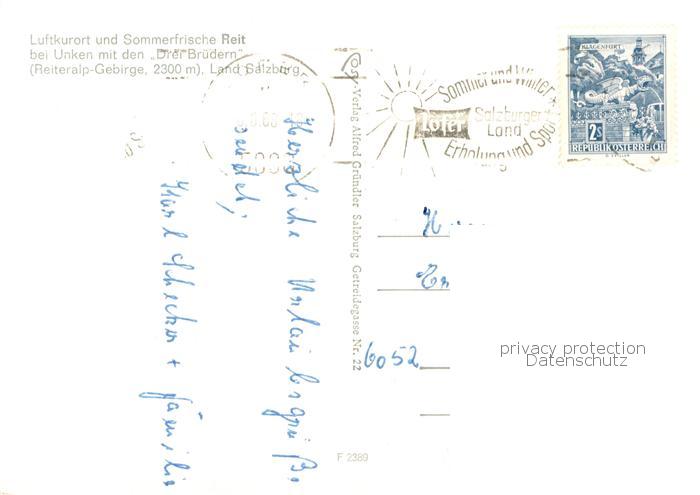 Luftkurort und Sommerfrische Reit
bei Unken mit den „Drei Brüdern“
(Reiteralp-Gebirge, 2300 m), Land Salzburg
Cosy-Verlag Alfred Gründler Salzburg Getreidegasse Nr. 22
Sommer und Winter
Lofer
Salzburger
Land
Erholung und Sport
KLAGENFURT
2S
REPUBLIK ÖSTERREICH
Herzliche Urlaubsgrüße
sendet,
Karl + Familie
H
6052
privacy protection
Datenschutz
F 2389